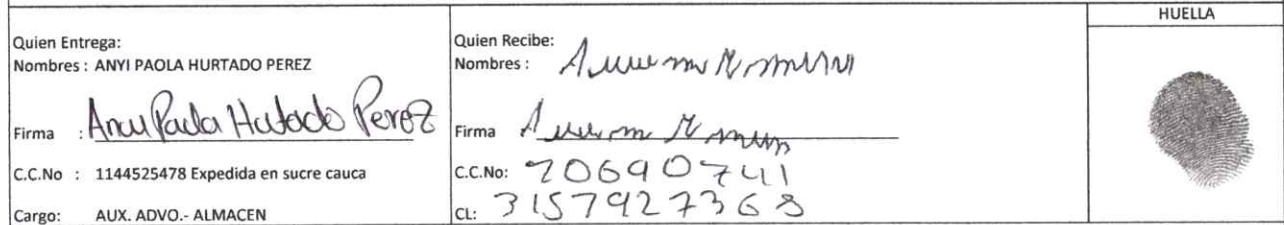 HUELLA
Quien Entrega:
Nombres : ANYI PAOLA HURTADO PEREZ
Firma : Anyi Paola Hurtado Perez
C.C.No : 1144525478 Expedida en sucre cauca
Cargo: AUX. ADVO.- ALMACEN
Quien Recibe:
Nombres :
Firma
C.C.No: 70690741
CL: 3157927368